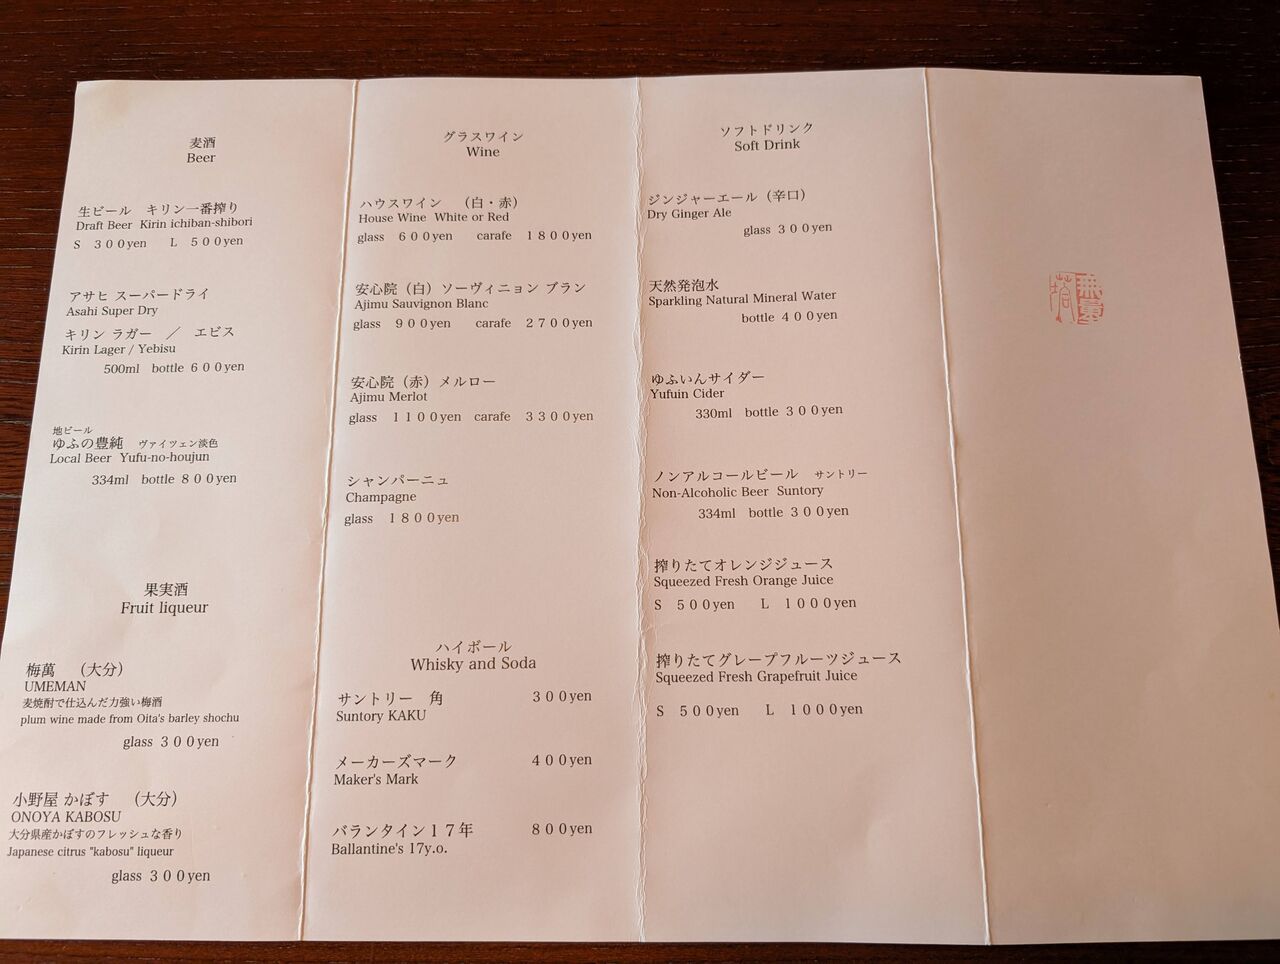 麦酒
Beer
生ビール　キリン一番搾り
Draft Beer  Kirin ichiban-shibori
S　３００yen　　L　５００yen
アサヒ スーパードライ
Asahi Super Dry
キリン ラガー　／　エビス
Kirin Lager / Yebisu
500ml　bottle ６００yen
地ビール
ゆふの豊純　ヴァイツェン淡色
Local Beer  Yufu-no-houjun
334ml　bottle ８００yen
果実酒
Fruit liqueur
梅萬　（大分）
UMEMAN
麦焼酎で仕込んだ力強い梅酒
plum wine made from Oita's barley shochu
glass ３００yen
小野屋 かぼす　（大分）
ONOYA KABOSU
大分県産かぼすのフレッシュな香り
Japanese citrus "kabosu" liqueur
glass ３００yen
グラスワイン
Wine
ハウスワイン　（白・赤）
House Wine  White or Red
glass　６００yen　　carafe　１８００yen
安心院（白）ソーヴィニョン ブラン
Ajimu Sauvignon Blanc
glass　９００yen　　carafe　２７００yen
安心院（赤）メルロー
Ajimu Merlot
glass　１１００yen　carafe　３３００yen
シャンパーニュ
Champagne
glass　１８００yen
ハイボール
Whisky and Soda
サントリー　角　　　　　３００yen
Suntory KAKU
メーカーズマーク　　　　４００yen
Maker's Mark
バランタイン１７年　　　８００yen
Ballantine's 17y.o.
ソフトドリンク
Soft Drink
ジンジャーエール（辛口）
Dry Ginger Ale
glass ３００yen
天然発泡水
Sparkling Natural Mineral Water
bottle ４００yen
ゆふいんサイダー
Yufuin Cider
330ml　bottle ３００yen
ノンアルコールビール　サントリー
Non-Alcoholic Beer  Suntory
334ml　bottle ３００yen
搾りたてオレンジジュース
Squeezed Fresh Orange Juice
S　５００yen　　L　１０００yen
搾りたてグレープフルーツジュース
Squeezed Fresh Grapefruit Juice
S　５００yen　　L　１０００yen